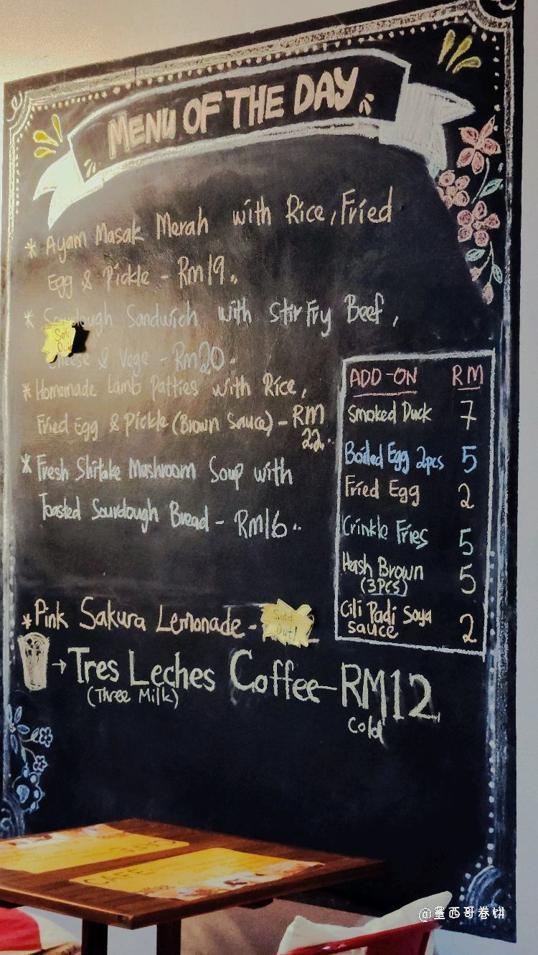 MENU OF THE DAY
* Ayam Masak Merah with Rice, Fried
Egg & Pickle - Rm19..
* Sourdough Sandwich with Stir Fry Beef,
Sold Out!
Cheese & Vege - Rm20.
* Homemade Lamb Patties with Rice,
Fried Egg & Pickle (Brown Sauce) - RM
22..
* Fresh Shitake Mushroom Soup with
Toasted Sourdough Bread - Rm16..
ADD-ON RM
Smoked Duck 7
Boiled Egg 2pcs 5
Fried Egg 2
Crinkle Fries 5
Hash Brown 5
(3Pcs)
Cili Padi Soya
sauce 2
* Pink Sakura Lemonade - Sold Out!
→ Tres Leches Coffee - RM12
(Three Milk)
Cold
CAFE
@墨西哥卷饼